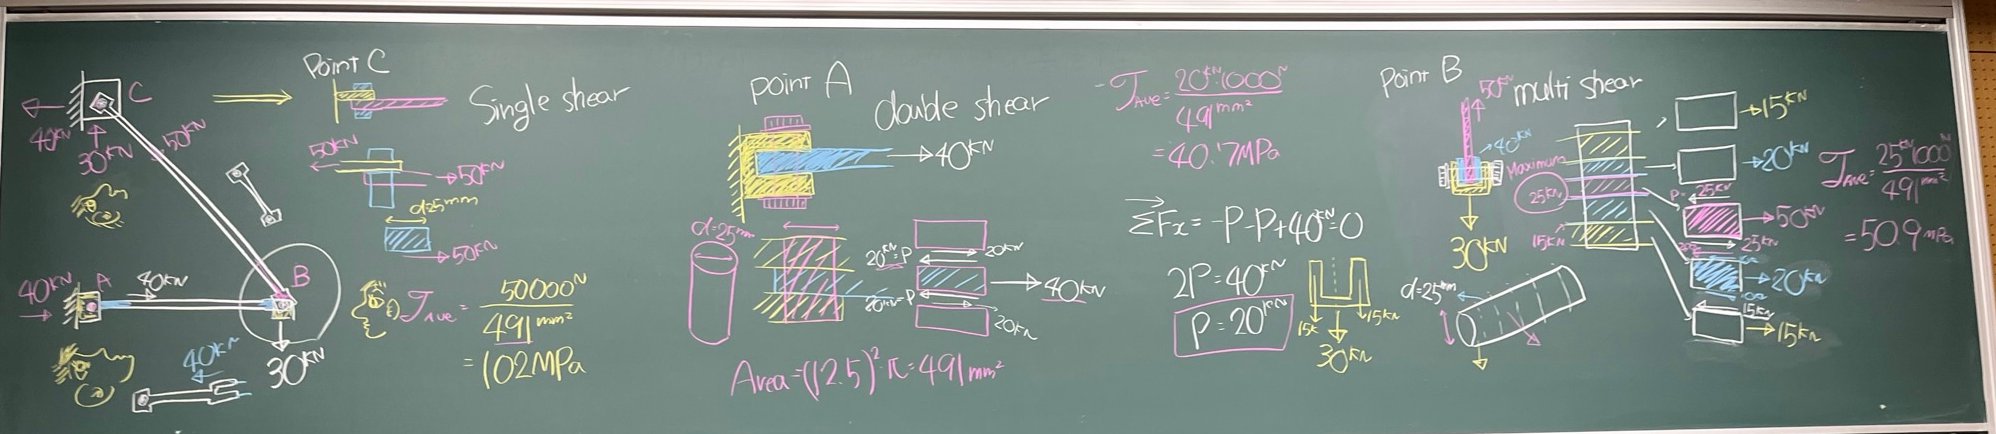 C
40KN
30KN
50KN
40KN
A
40KN
B
30KN
40KN
Point C
Single shear
50KN
50KN
d=25mm
50KN
τAve = 50000N / 491mm²
= 102MPa
point A
double shear
40KN
d=25mm
20KN=P
20KN
40KN
20KN=P
20KN
Area=(12.5)²π=491mm²
τAve = 20KN·1000N / 491mm²
= 40.7MPa
ΣFx = -P-P+40KN=0
2P=40KN
P=20KN
15K
15KN
30KN
Point B
multi shear
50KN
40KN
30KN
Maximum
25KN
15KN
15KN
20KN
P=
25KN
50KN
25KN
20KN
15KN
15KN
d=25mm
τAve = 25KN·1000N / 491mm²
= 50.9MPa